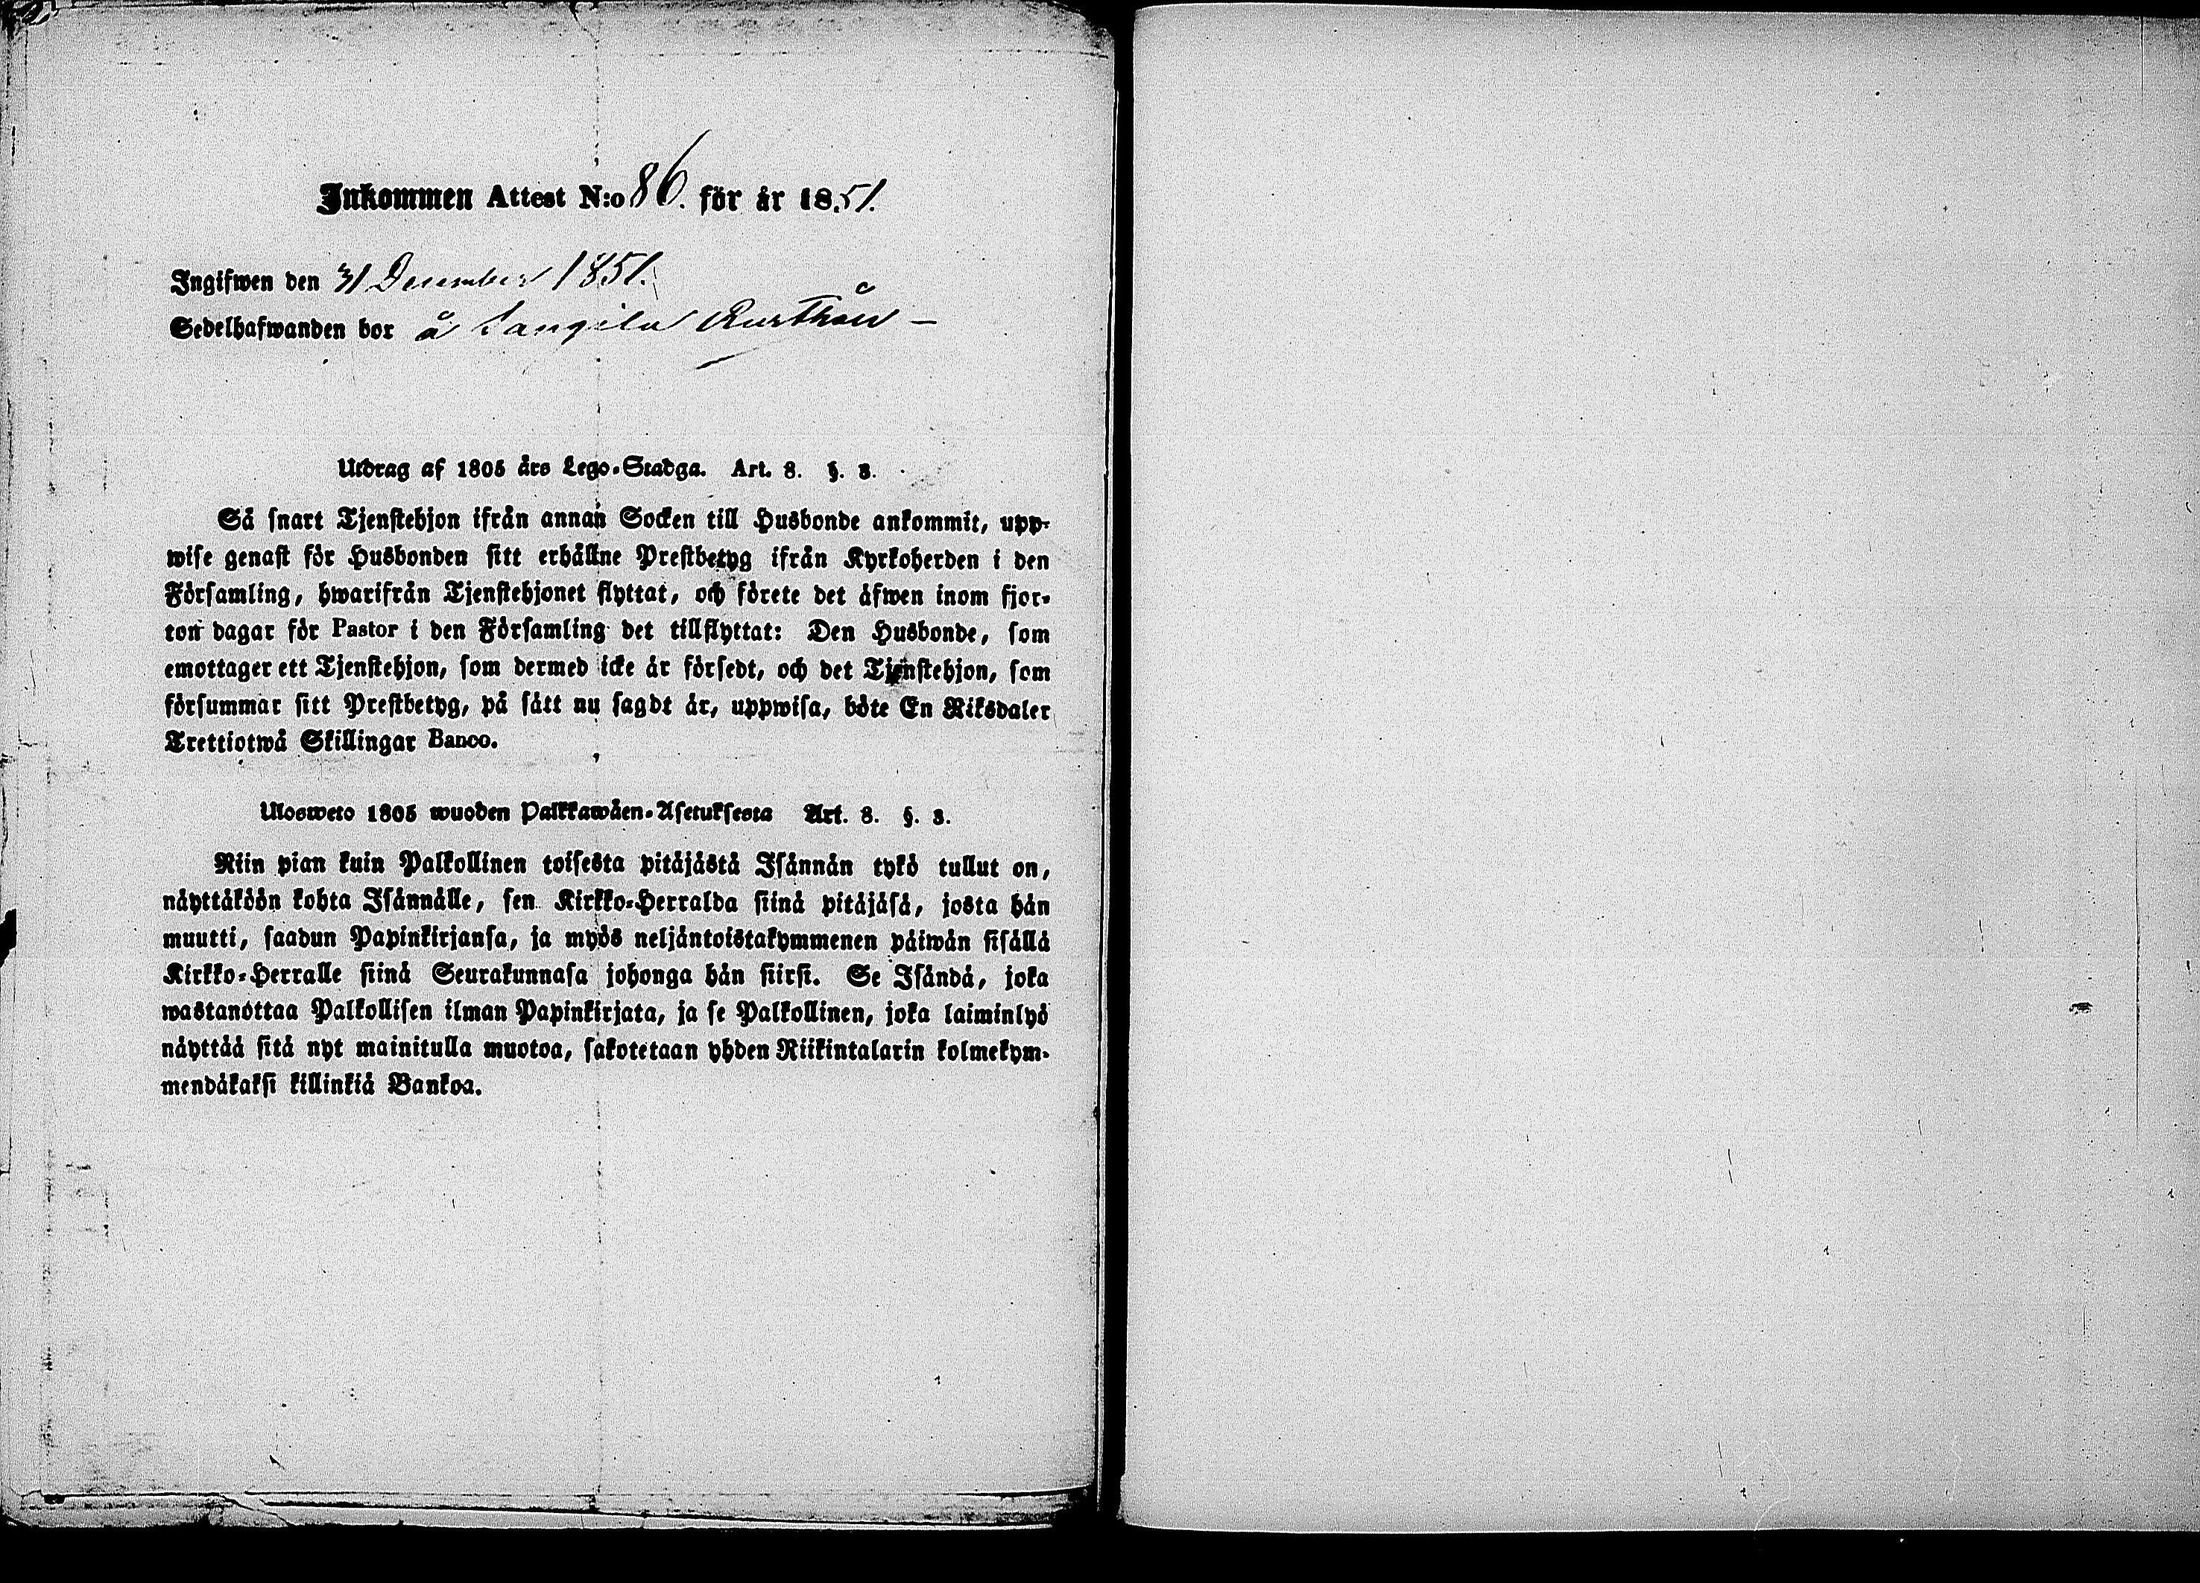 Inkommen Attest N:o 86. för år 1851.
Ingifwen den 31 December 1851.
Sedelhafwanden bor å
Utdrag af 1805 års Lego-Stadga. Art. 8. §. 3.
Så snart Tjenstehjon ifrån annan Socken till Husbonde ankommit, upp-
wise genast för Husbonden sitt erhållne Prestbetyg ifrån Kyrkoherden i den
Församling, hwarifrån Tjenstehjonet flyttat, och förete det äfwen inom fjor-
ton dagar för Pastor i den Församling det tillflyttat: Den Husbonde, som
emottager ett Tjenstehjon, som dermed icke är försedt, och det Tjenstehjon, som
försummar sitt Prestbetyg, på sätt nu sagdt är, uppwisa, böte En Riksdaler
Trettiotwå Skillingar Banco.
Uloswето 1805 wuoden Palkkawäen-Asetuksesta Art. 8. §. 3.
Niin pian kuin Palkollinen toisesta pitäjästä Isännän tykö tullut on,
näyttäköön kohta Isännälle, sen Kirkko-Herralda siinä pitäjäsä, josta hän
muutti, saadun Papinkirjansa, ja myös neljäntoistakymmenen päiwän sisällä
Kirkko-Herralle siinä Seurakunnasa johonga hän siirsi. Se Isändä, joka
wastanottaa Palkollisen ilman Papinkirjata, ja se Palkollinen, joka laiminlyö
näyttää sitä nyt mainitulla muotoa, sakotetaan yhden Riikintalarin kolmekym-
mendäkaksi killinkiä Bankoa.